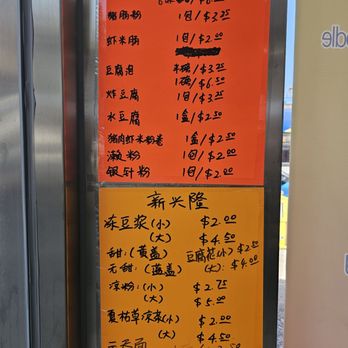 猪肠粉 1包/$3.25
虾米肠 1包/$2.00
豆腐泡 半磅/$3.25
1磅/$6.50
炸豆腐 1包/$3.25
水豆腐 1盒/$2.50
猪肉虾米粉卷 1盒/$2.50
濑粉 1包/$2.00
银针粉 1包/$2.00
新兴隆
冻豆浆(小) $2.00
(大) $4.50
甜:(黄盖) 豆腐花(小) $2.50
无甜:(蓝盖) (大): $4.00
凉粉:(小) $2.75
(大) $5.00
夏枯草凉茶(小) $2.00
(大) $4.50